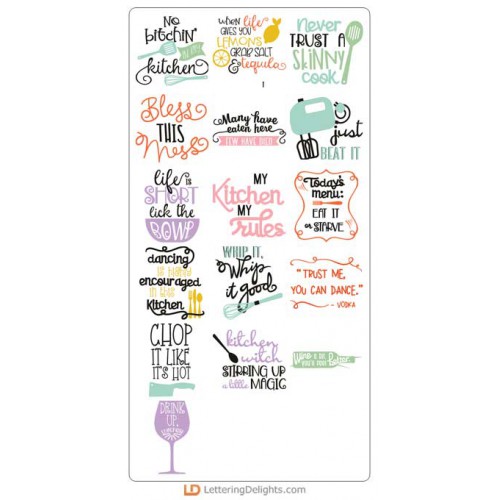 No
bitchin'
in my
kitchen
when life
gives you
LEMON'S
GRAB SALT
& tequila
Never
TRUST A
SKINNY
COOK
Bless
THIS
Mess
Many have
eaten here
FEW HAVE DIED
just
BEAT IT
life is
SHORT
lick the
BOWL
MY
Kitchen
MY
rules
Today's
menu:
EAT IT
or STARVE
dancing
is highly
encouraged
in this
kitchen
WHIP IT,
Whip
it good
"TRUST ME,
YOU CAN DANCE."
- VODKA
CHOP
IT LIKE
IT'S HOT
kitchen
witch
STIRRING UP
a little MAGIC
DRINK
UP,
LD LetteringDelights.com